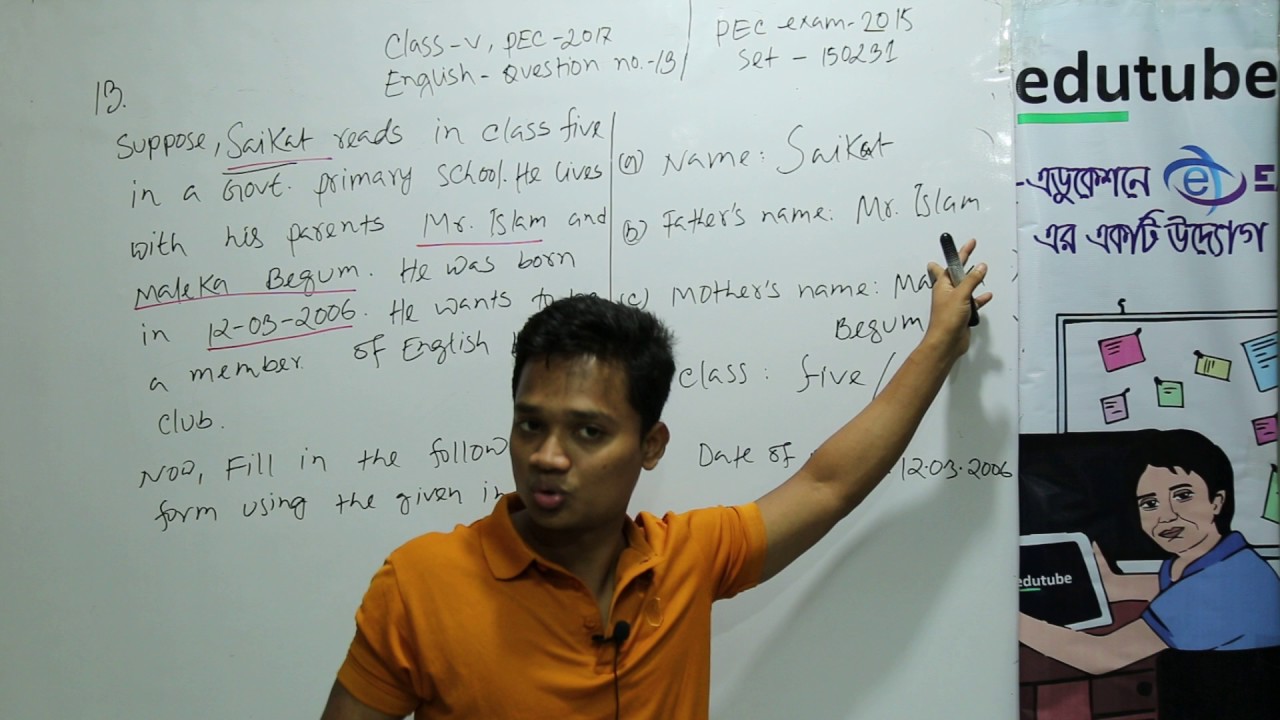 Class-V, PEC-2017
English - Question no.-13
PEC exam-2015
Set - 150231
13.
Suppose, Saikat reads in class five
in a Govt. primary school. He lives
with his parents Mr. Islam and
Maleka Begum. He was born
in 12-03-2006. He wants to be
a member of English
club.
Now, Fill in the
form using the given
(a) Name: Saikat
(b) Father's name: Mr. Islam
(c) Mother's name:
Begum
class: five/
Date of 12.03.2006
edutube
-এডুকেশনে e E
এর একটি উদ্যোগ
edutube